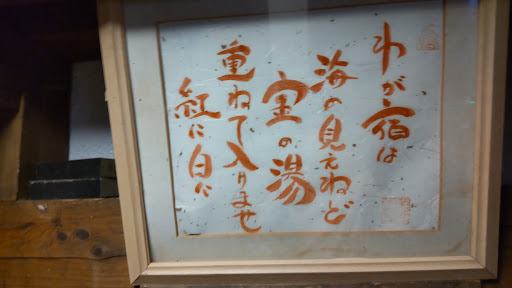 わが宿は
海の見えねど
宝の湯
重ねて入りませ
紅に白に